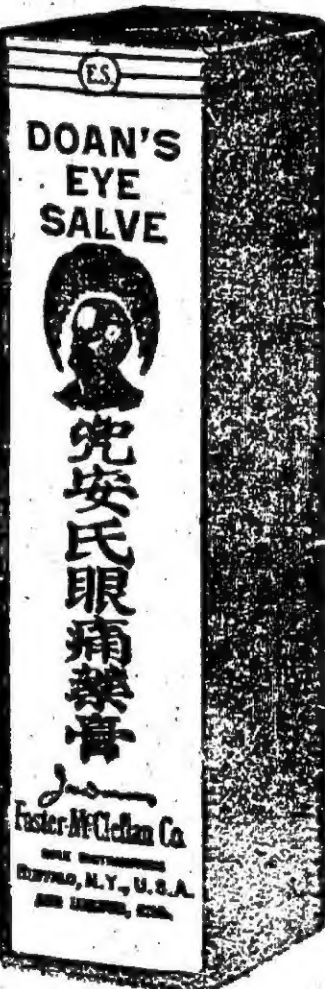 E.S.
DOAN'S
EYE
SALVE
兜安氏眼痛藥膏
Foster-McClellan Co.
SOLE DISTRIBUTORS
BUFFALO, N.Y., U.S.A.
AND